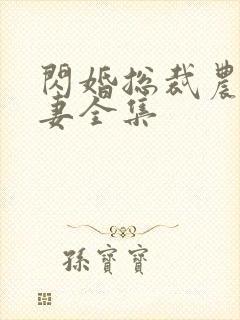 閃婚總裁農
妻全集
孫寶寶